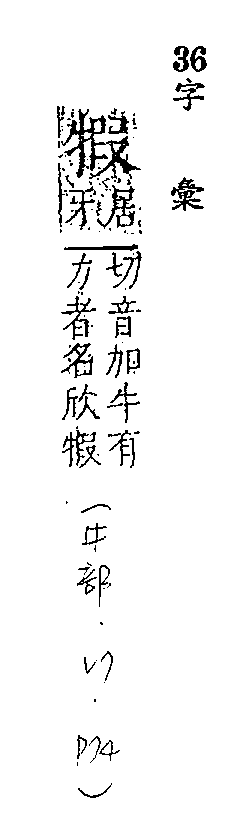 36字彙
犌
居牙
切音加牛有
力者名欣犌
(牛部·